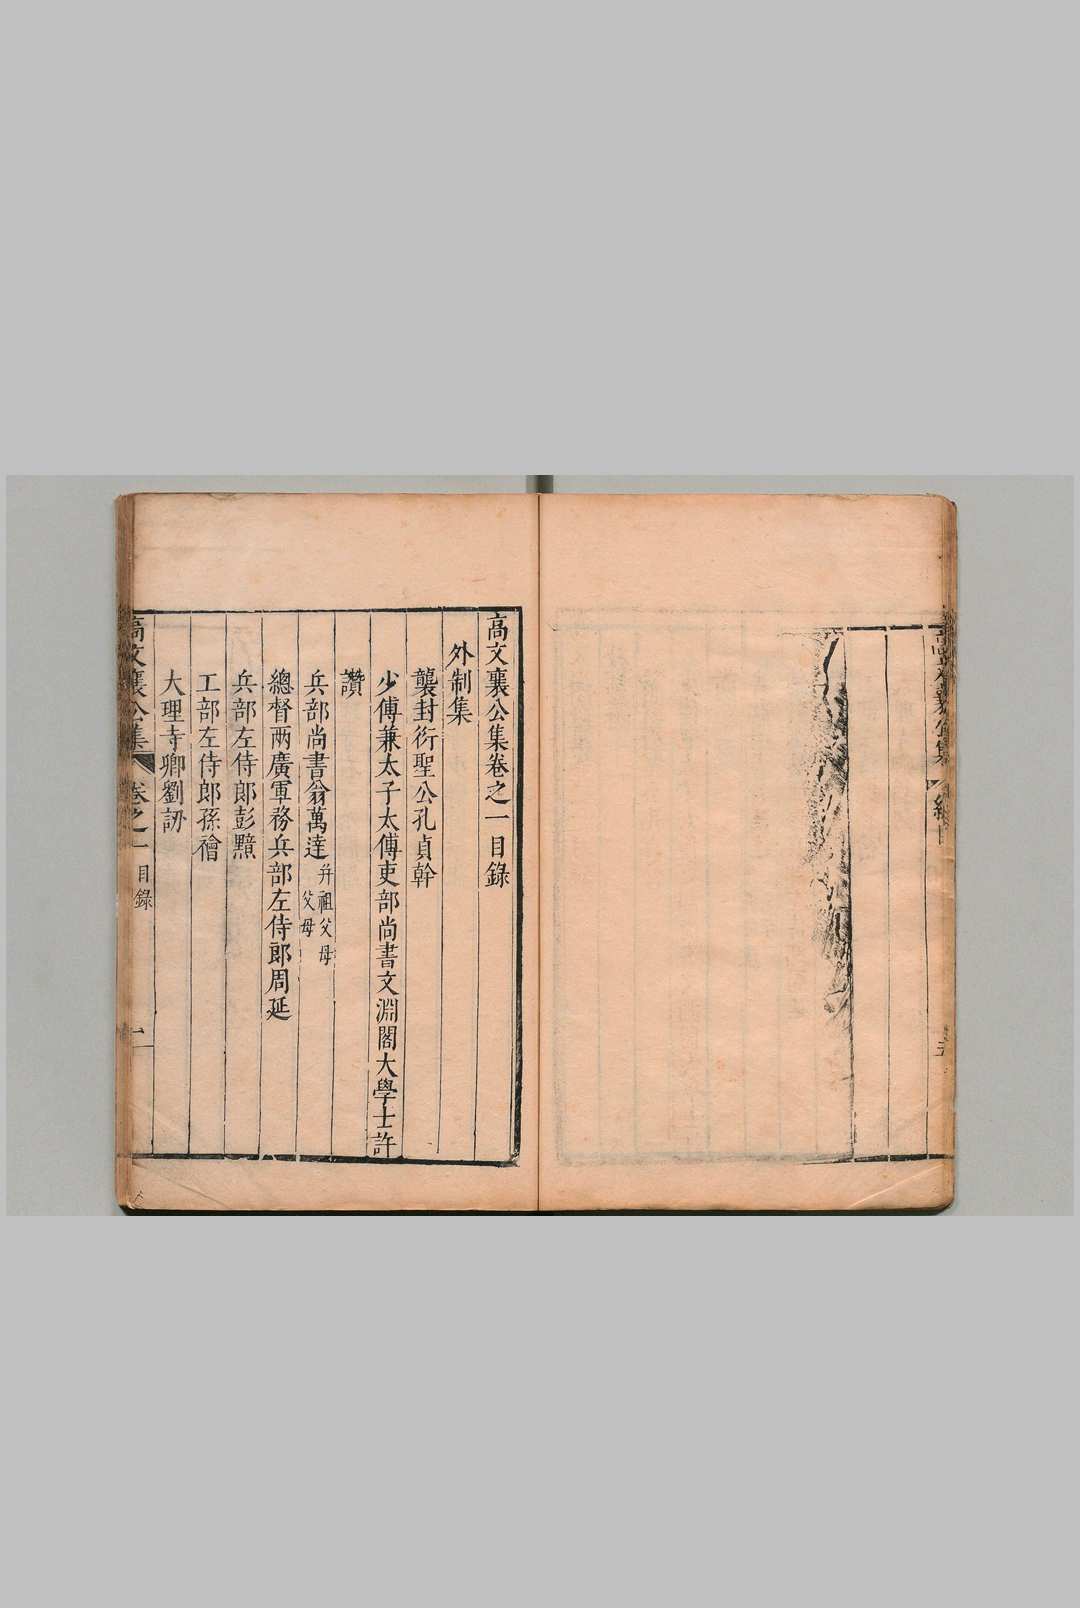 高文襄公集
五
高文襄公集卷之一目錄
外制集
襲封衍聖公孔貞幹
少傅兼太子太傅吏部尚書文淵閣大學士許
讚
兵部尚書翁萬達
幷祖父母
父母
總督兩廣軍務兵部左侍郎周延
兵部左侍郎彭黯
工部左侍郎孫禬
大理寺卿劉訒
高文襄公集
卷之一
目錄
一